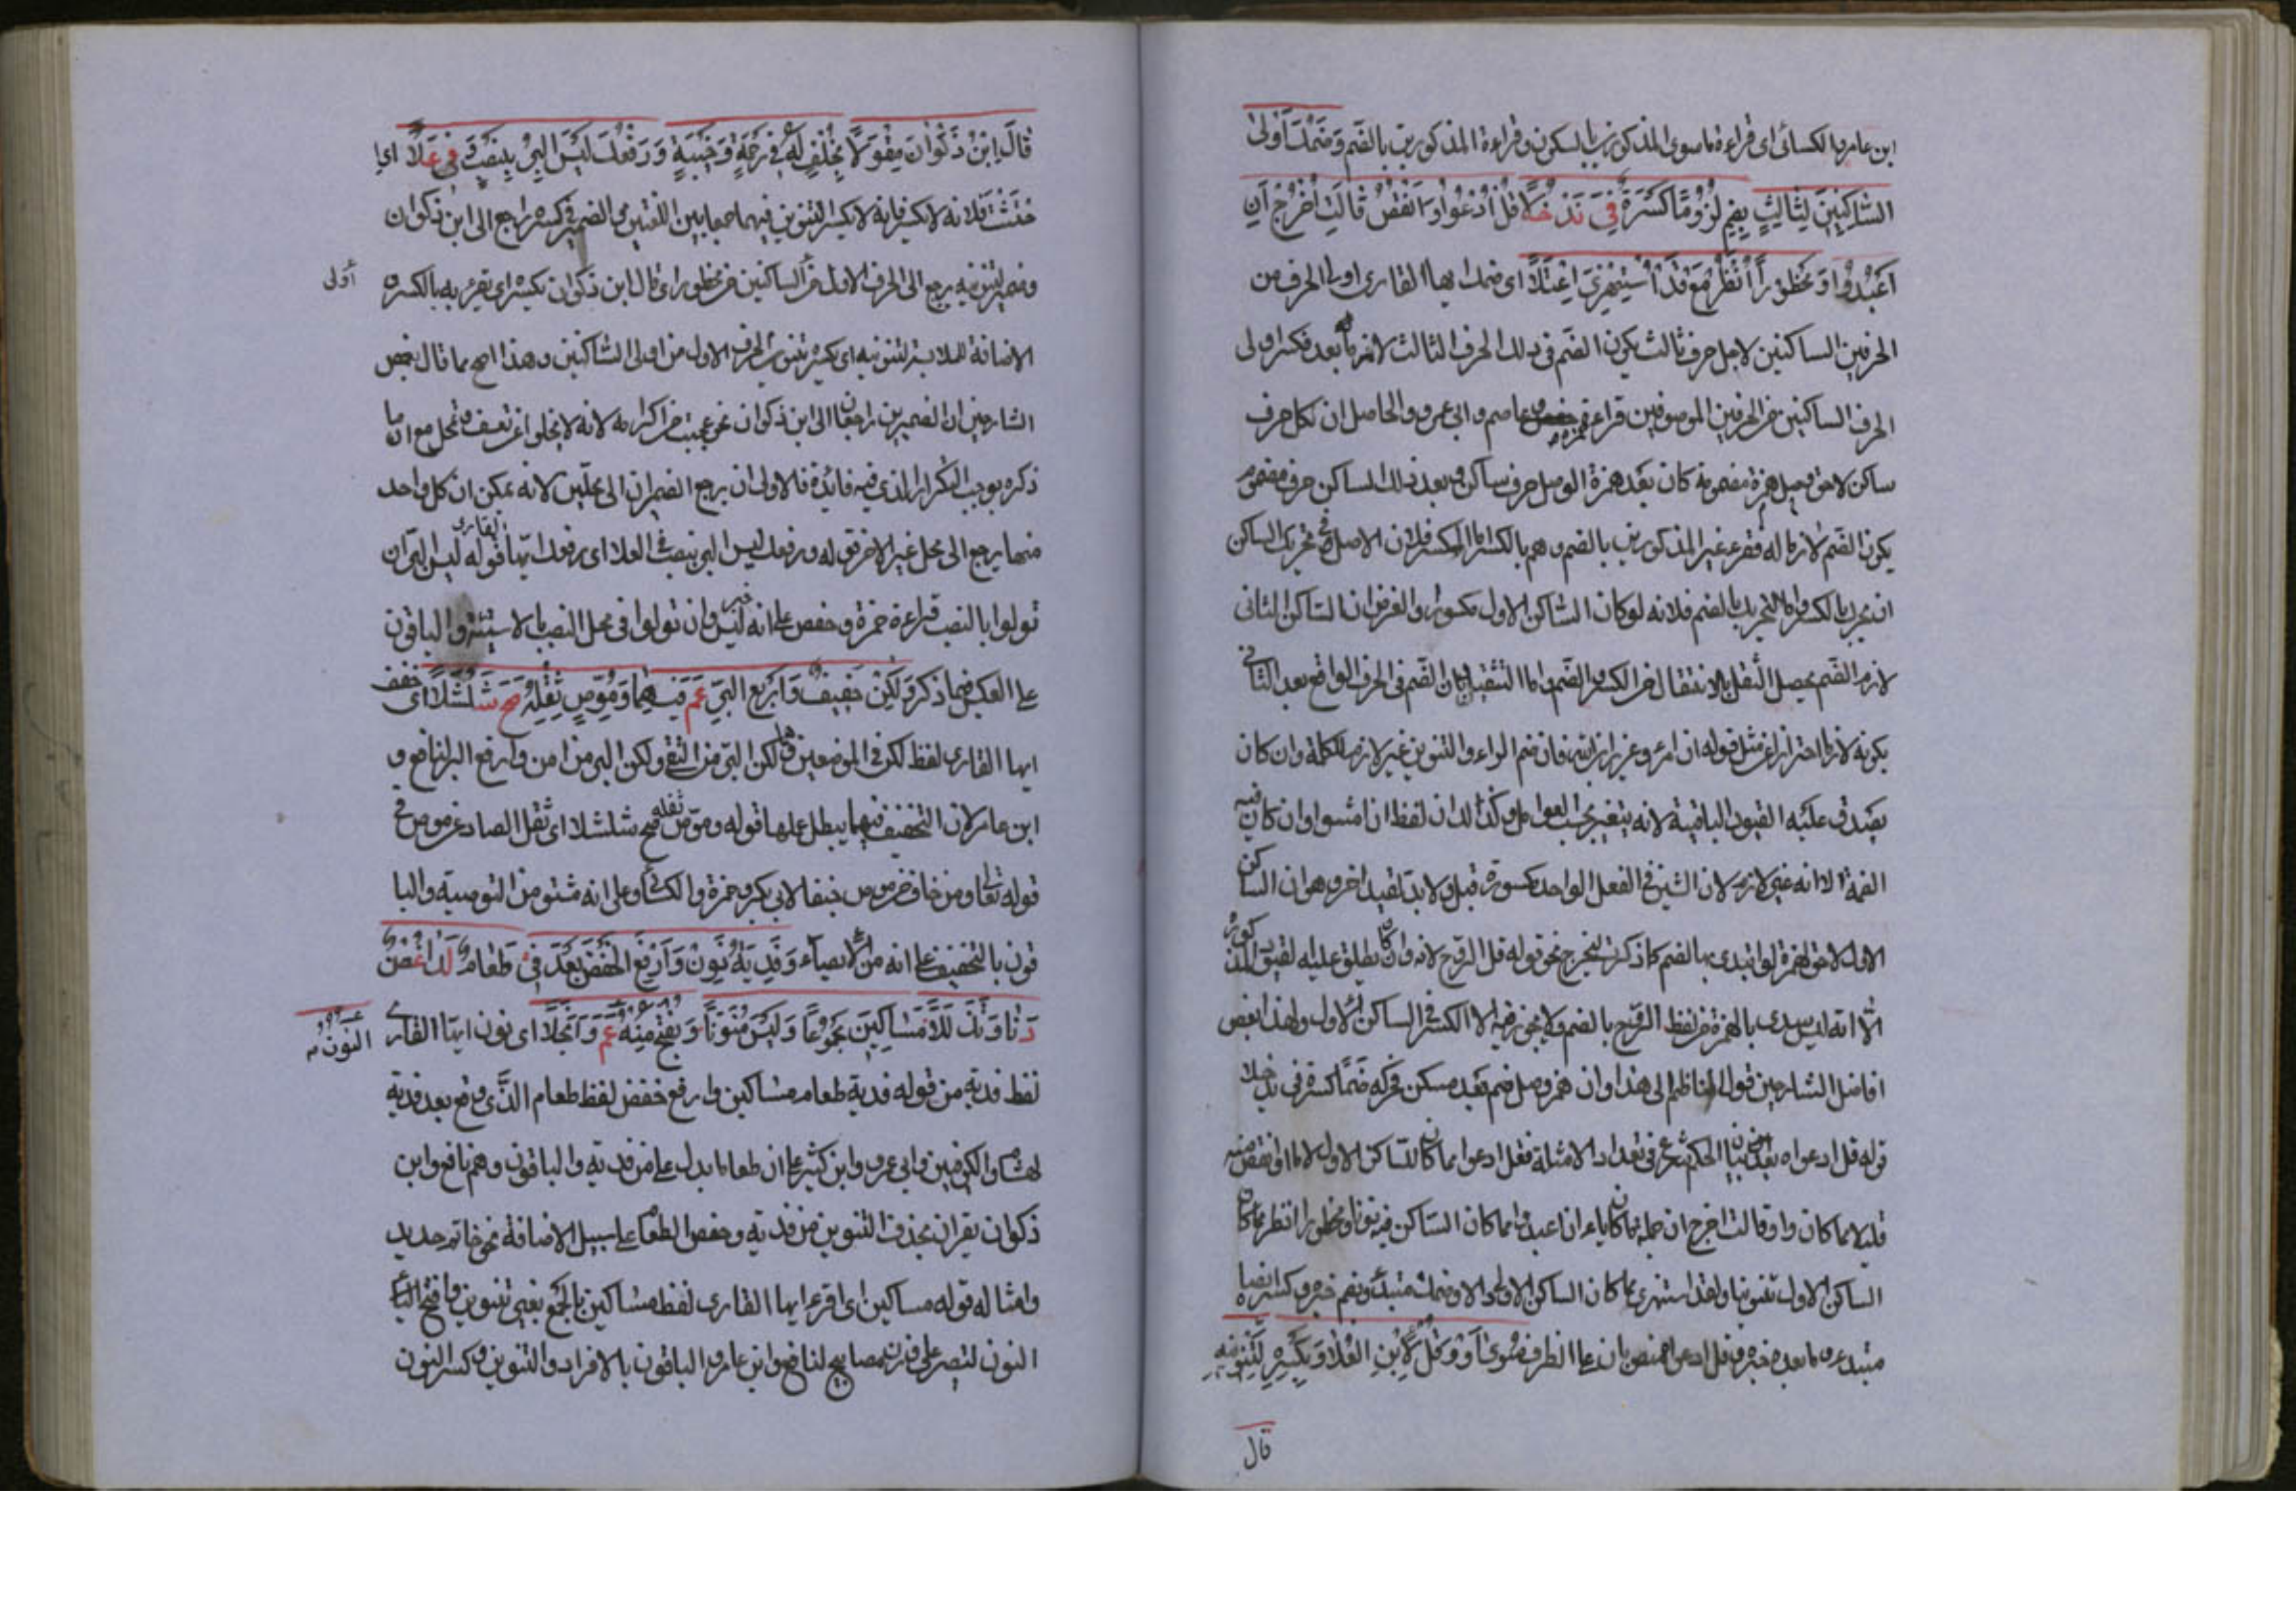 ابن عامر والكسائى اى قراءة ما سوى المذكورين بالسكون وقراءة المذكورين بالضم وَضَمُّكَ أُولَى
السَّاكِنَيْنِ لِثَالِثٍ يُضَمُّ لُزُومًا كَسْرُهُ فِى نَدٍ حَلَا قُلِ ادْعُوا أَوِ انْقُصْ قَالَتِ اخْرُجْ أَنِ
اعْبُدُوا وَمَحْظُورًا انْظُرْ مَعْ قَدِ اسْتُهْزِئَ اعْتَلَا اى ضمك ايها القارى اولى الحرف من
الحرفين الساكنين لاجل حرف ثالث يكون الضم فى ذلك الحرف الثالث لازما بعد فكسر اولى
الحرف الساكنين من الحرفين الموصوفين قراءة حمزة عاصم وابى عمرو والحاصل ان لكل حرف
ساكن لاحق قبيل همزة مضمومة كان بعد همزة الوصل حرف ساكن وبعد ذلك الساكن حرف مضموم
يكون الضم لازما له فقرء غير المذكورين بالضم وهم بالكسر اما الكسر فلان الاصل فى تحريك الساكن
ان يحرك بالكسر واما التحريك بالضم فلانه لو كان الساكن الاول مكسورا والفرض ان الساكن الثانى
لازم الضم يحصل الثقل بالانتقال من الكسر الى الضم واما التقييد بان الضم فى الحرف الواقع بعد الثانى
بكونه لازما احتراز عن مثل قوله ان امرؤ وعزير ابن فان ضم الراء والتنوين غير لازم للكلمة وان كان
يصدق عليه القيود الباقية لانه يتغير بحسب العوامل وكذلك ان لفظ ان امشوا وان كان فيه
الضمة الا انه غير لازم لان الشين فى الفعل الواحد مكسورة قيل ولا بد لقيد اخر وهو ان الساكن
الاول لاحق لهمزة لو ابتدئ بها لضم كما ذكرت ليخرج نحو قوله قل الروح لانه وان كان يطلق عليه القيود المذكورة
الا انه ليس يبدى بالهمزة من لفظ الروح بالضم ولا يجوز فيه الا الكسر فى الساكن الاول ولهذا بعض
افاضل الشارحين قول الناظم الى هذا وان همز وصل ضم بعد مسكن فحركه ضما كسره فى ند حلا
قوله قل ادعوا بعد بيان الحكم شرع فى تعداد الامثلة فقل ادعوا مما كان الساكن الاول لاما او انقص منه
قليلا مما كان واو وقالت اخرج ان مما كان تاء ان اعبدوا مما كان الساكن فيه نونا ومحظورا انظر مما كان
الساكن الاول تنوينا ولقد استهزئ مما كان الساكن الاول دالا وضمك مبتدأ ويضم خبره وكسره ايضا
مبتدء وما بعده خبره وقل ادعوا منصوبا ان على الظرف سِوَى أَوْ وَقُلْ لِابْنِ الْعَلَا وَبِكَسْرِهِ لِتَنْوِينِهِ
قال
قَالَ ابْنُ ذَكْوَانَ مِقْوَلًا بِخُلْفٍ لَهُ فِى رَحْمَةٍ وَخَبِيثَةٍ وَرَفْعُكَ لَيْسَ الْبِرُّ يُنْصَبُ فِى عَلَا اى
خبيثة فلانه لا يكسر فانه لا يكسر التنوين فيهما جمعا بين اللغتين والضمير فى كسره راجع الى ابن ذكوان
وضمير لتنوينه يرجع الى الحرف الاول من الساكنين من محظورا اى قال ابن ذكوان بكسره اى يقرء به بالكسره
أولى
الاضافة للملابسة لتنوينه اى بكسر تنوين الحرف الاول من اولى الساكنين وهذا اصح مما قال بعض
الشارحين ان الضميرين راجعان الى ابن ذكوان لانه لا يخلو عن تعسف وتمحل مع ان ما
ذكره يوجب التكرار الذى فيه فائدة فالاولى ان يرجع الضميران الى محلين لانه يمكن ان كل واحد
منهما يرجع الى محل غير الاخر قوله ورفعك ليس البر ينصب فى العلا اى رفعك ايها القارى قوله ليس البر ان
تولوا بالنصب قراءة حمزة وحفص على انه خبر ليس وان تولوا فى محل النصب والباقون
على العكس فيما ذكر وَلَكِنْ خَفِيفٌ وَارْفَعِ الْبِرَّ عَمَّ فِيهِمَا وَمُوَصٍّ ثِقْلُهُ صَحَّ شُلْشُلَا اى خفف
ايها القارى لفظ لكن فى الموضعين هما لكن البر من اتقى ولكن البر من امن وارفع البر لنافع و
ابن عامر لان التخفيف فيهما يبطل عملها قوله وموص ثقله صح شلشلا اى ثقل الصاد عن موص فى
قوله تعالى ومن خاف من موص جنفا لابى بكر وحمزة والكسائى على انه مشتق من التوصية والبا
قون بالتخفيف على انه من الايصاء وَفِدْيَةُ نَوِّنْ وَارْفَعِ الْخَفْضَ بَعْدُ فِى طَعَامٍ لَدَى غُصْنٍ
دَنَا وَتَذَلَّلَا مَسَاكِينَ مَجْمُوعًا وَلَيْسَ مُنَوَّنًا وَيُفْتَحُ مِنْهُ عَمَّ وَأَبْجَلَا اى نون ايها القارى
النون
لفظ فدية من قوله فدية طعام مساكين وارفع خفض لفظ طعام الذى وقع بعد فدية
لهشام والكوفيين وابى عمرو وابن كثير على ان طعاما بدل على من فدية والباقون وهم نافع وابن
ذكوان يقران بحذف التنوين من فدية وخفض الطعام على سبيل الاضافة نحو خاتم حديد
وامثاله قوله مساكين اى اقرء ايها القارى لفظ مساكين بالجمع بغير تنوين وافتح
النون لتصير على وزن مصابيح لنافع وابن عامر والباقون بالافراد والتنوين وكسر النون